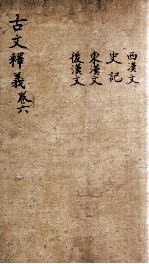 西漢文
史記
東漢文
後漢文
古文釋義卷六